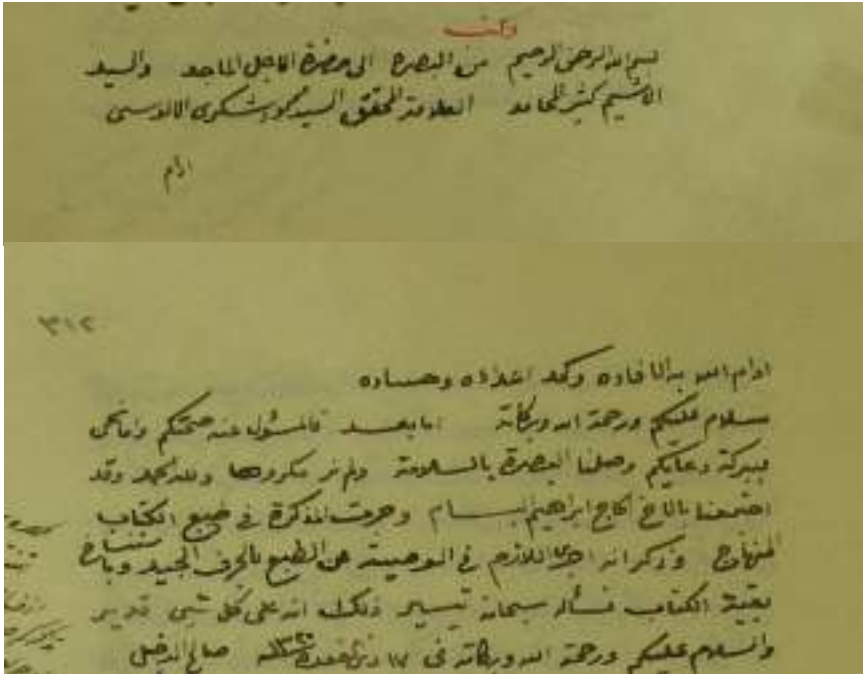 وكتب
بسم الله الرحمن الرحيم من البصرة الى حضرة الاجل الماجد والسيد
كثير المحامد العلامة المحقق السيد محمود شكري الالوسي
ادام
٣١٢
ادام الله به الافاده وكمد اعداه وحساده
سلام عليكم ورحمة الله وبركاته اما بعد فالمسئول عنه صحتكم واما نحن
فببركة دعائكم وصلنا البصرة بالسلامة ولم نر مكروها ولله الحمد وقد
اجتمعنا بالاخ الحاج ابراهيم البسام وجرت المذكرة في طبع الكتاب
المنهاج وذكر انه اجرى اللازم في الوصية على الطبع بالحرف الجيد
بقية الكتاب فنسأله سبحانه تيسير ذلك انه على كل شيء قدير
والسلام عليكم ورحمة الله وبركاته في ١٧ ذي القعدة صالح الدخيل